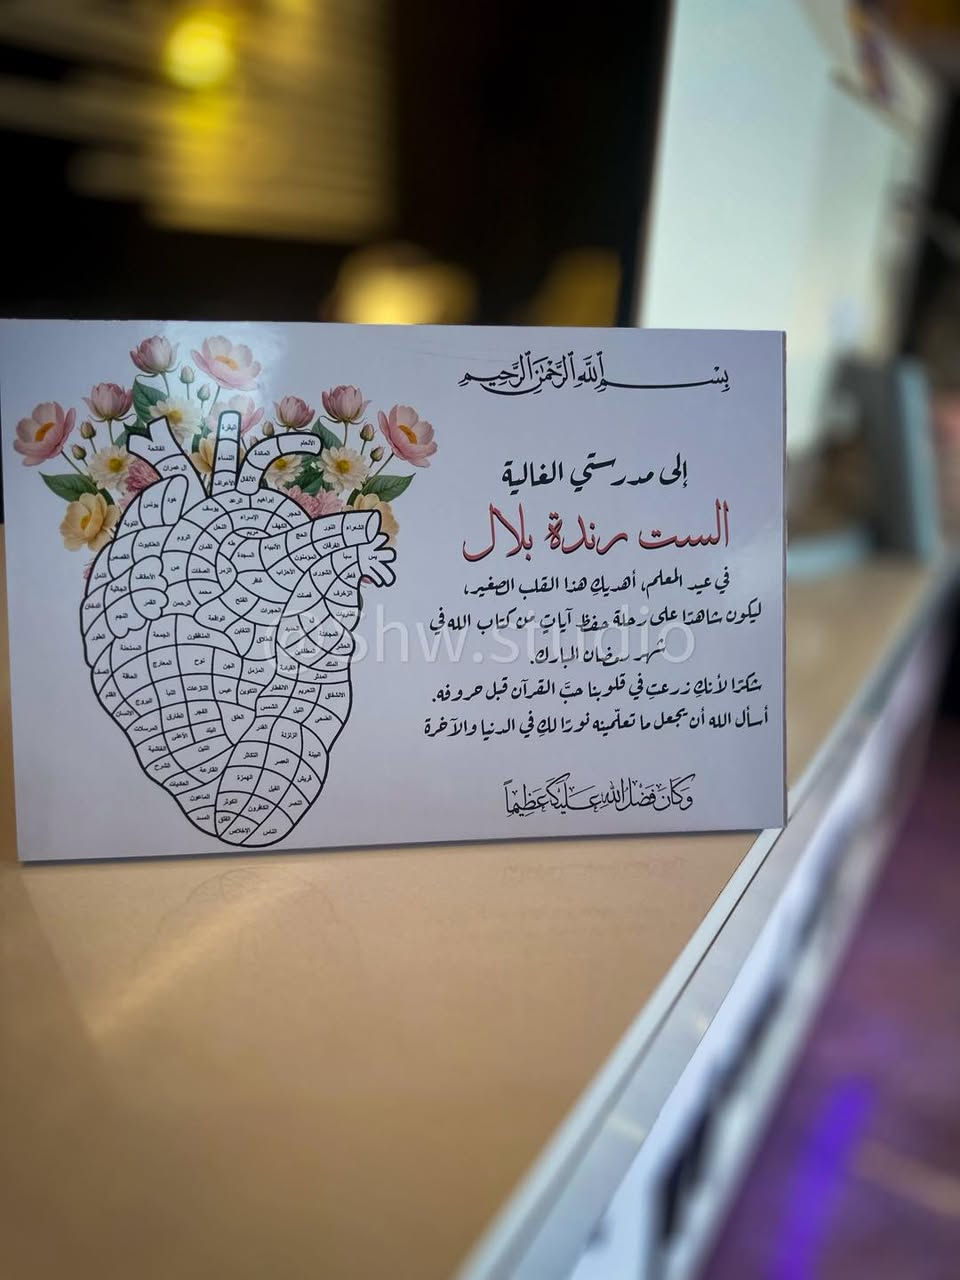 بِسْمِ ٱللَّهِ ٱلرَّحْمَٰنِ ٱلرَّحِيمِ
إلى مدرستي الغالية
الست رندة بلال
في عيد المعلم، أهديكِ هذا القلب الصغير،
ليكون شاهدًا على رحلة حفظ آياتٍ من كتاب الله في
شهر رمضان المبارك.
شكرًا لأنكِ زرعتِ في قلوبنا حبَّ القرآن قبل حروفه.
أسأل الله أن يجعل ما تعلّمينه نورًا لكِ في الدنيا والآخرة
وَكَانَ فَضْلُ اللهِ عَلَيْكَ عَظِيمًا
البقرة
الفاتحة
ال عمران
النساء
المائدة
الأنعام
الأعراف
الأنفال
التوبة
يونس
هود
يوسف
الرعد
إبراهيم
الحجر
النحل
الإسراء
الكهف
مريم
طه
الأنبياء
الحج
المؤمنون
النور
الفرقان
الشعراء
النمل
القصص
العنكبوت
الروم
لقمان
السجدة
الأحزاب
سبا
فاطر
يس
الصافات
ص
الزمر
غافر
فصلت
الشورى
الزخرف
الدخان
الجاثية
الأحقاف
محمد
الفتح
الحجرات
ق
الذاريات
الطور
النجم
القمر
الرحمن
الواقعة
الحديد
المجادلة
الحشر
الممتحنة
الجمعة
المنافقون
التغابن
الطلاق
الملك
القلم
الحاقة
المعارج
نوح
الجن
المزمل
المدثر
القيامة
الانسان
المرسلات
النبا
النازعات
عبس
التكوين
الانفطار
المطففين
الانشقاق
البروج
الطارق
الأعلى
الغاشية
الفجر
البلد
الشمس
الليل
الضحى
الشرح
التين
العلق
القدر
البينة
الزلزلة
العاديات
القارعة
التكاثر
العصر
الهمزة
الفيل
قريش
الماعون
الكوثر
الكافرون
النصر
المسد
الإخلاص
الفلق
الناس
@Shw.studio